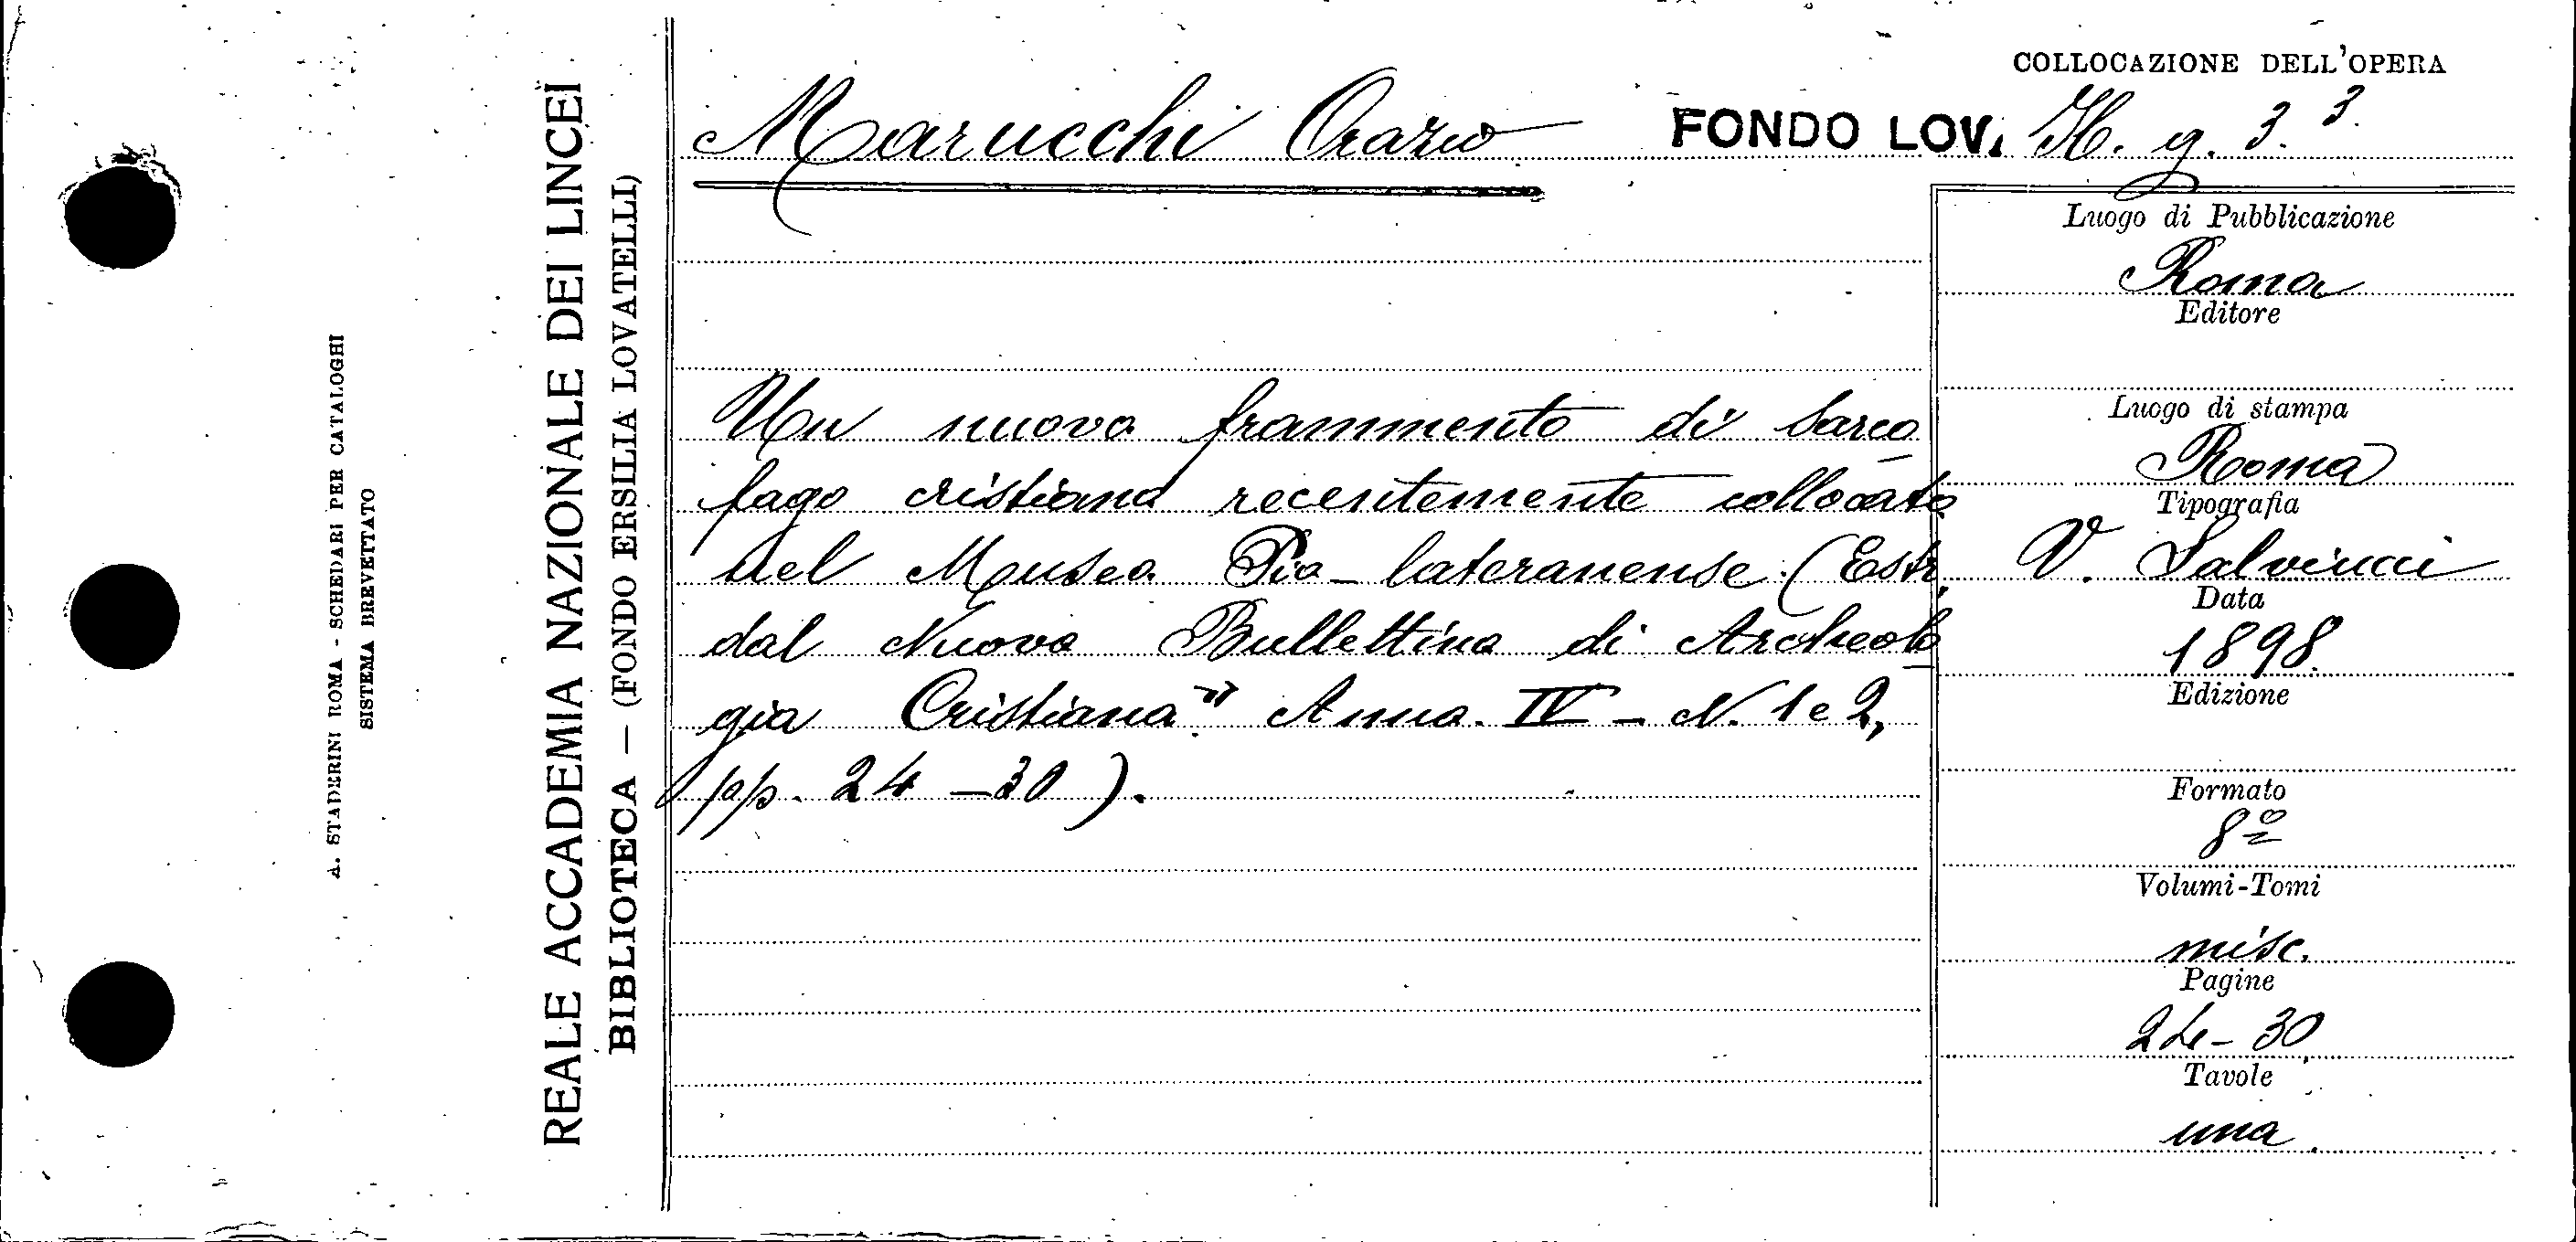 A. STADERINI ROMA - SCHEDARI PER CATALOGHI
SISTEMA BREVETTATO
REALE ACCADEMIA NAZIONALE DEI LINCEI
BIBLIOTECA — (FONDO ERSILIA LOVATELLI)
COLLOCAZIONE DELL'OPERA
Marucchi Orazio FONDO LOV. H. g. 3. 3.
Un nuovo frammento di sarco
fago cristiano recentemente collocato
nel Museo Pio-lateranense. (Estr.
dal Nuovo Bullettino di Archeolo
gia Cristiana" Anno IV - N. 1 e 2,
pp. 24-30).
Luogo di Pubblicazione
Roma
Editore
Luogo di stampa
Roma
Tipografia
V. Salviucci
Data
1898.
Edizione
Formato
8º
Volumi-Tomi
misc.
Pagine
24-30
Tavole
una